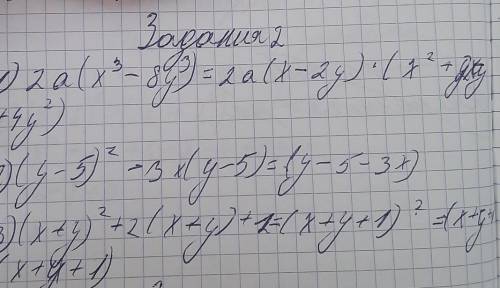 Задания 2
1) 2a(x³ - 8y³) = 2a(x - 2y) · (x² + 2xy
+ 4y²)
2) (y - 5)² - 3x(y - 5) = (y - 5 - 3x)
3) (x + y)² + 2(x + y) + 1 = (x + y + 1)² = (x + y +
(x + y + 1)